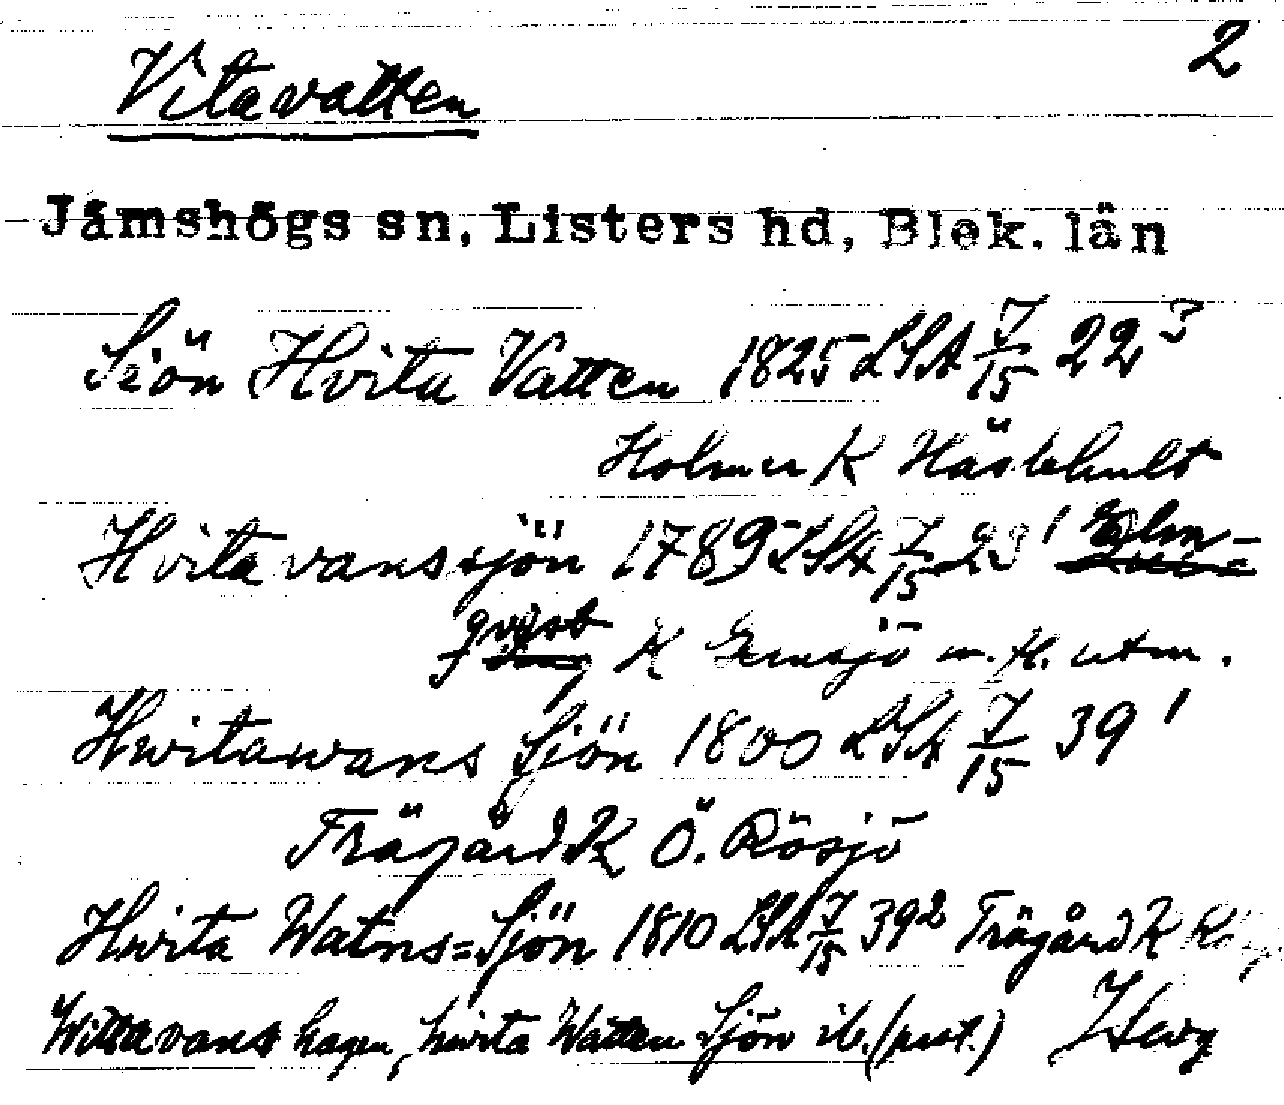 2
Vitavatten
Jämshögs sn, Listers hd, Blek. län
Siön Hvita Vatten 1825 LSA 7/15 22³
Holmen K Hästehult
Hvitavanssjön 1789 LSA 7/15 23¹
K Gemsjö m. fl. utm.
Hwitawans Sjön 1800 LSA 7/15 39¹
Trägård K Ö. Rösjö
Hwita Watns=Sjön 1810 LSA 7/15 39² Trägård K
Wittavans hagen, hwita Watten Sjön ib. (prot.)